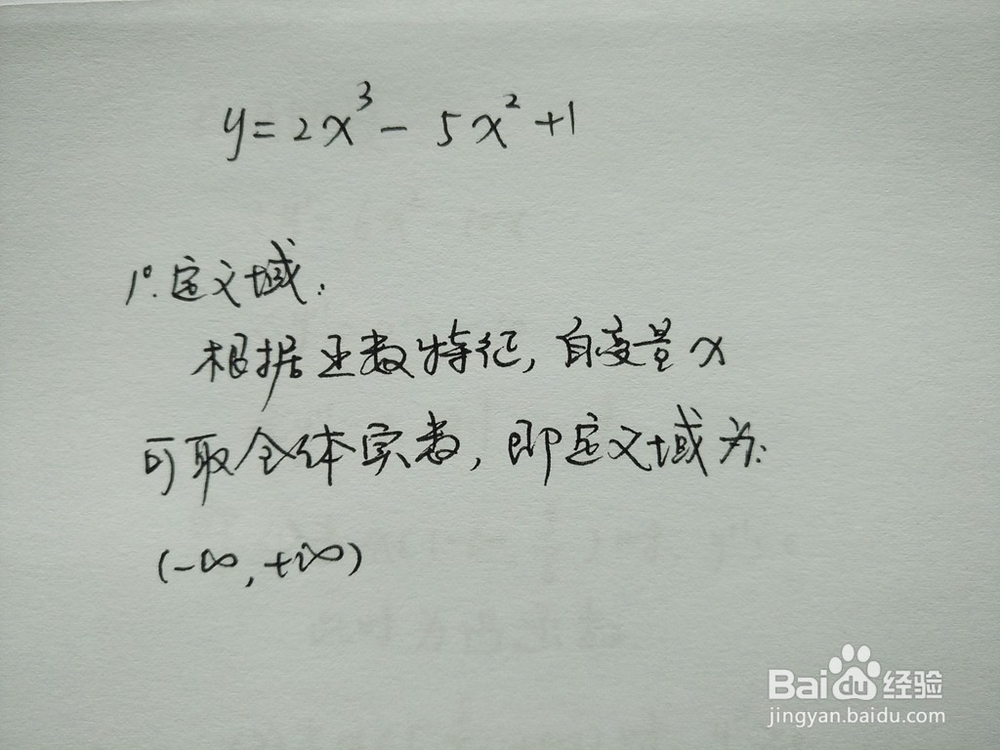 y=2x³-5x²+1
1°.定义域:
根据函数特征,自变量x
可取全体实数,即定义域为:
(-∞,+∞)
Baidu经验
jingyan.baidu.com